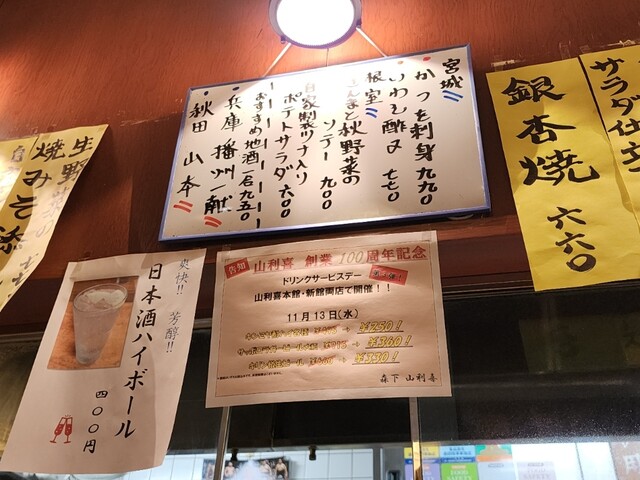 宮城
かつを刺身 九九〇
いわし酢〆 七七〇
根室
さんまと秋野菜の
ソテー 九〇〇
自家製ツナ入り
ポテトサラダ 六〇〇
おすすめ地酒一合九五〇
兵庫 播州一献
秋田 山本
銀杏焼 六六〇
サラダ仕立
生野
焼みそ添
爽快!! 芳醇!!
日本酒ハイボール
四〇〇円
告知
山利喜 創業100周年記念
ドリンクサービスデー
山利喜本館・新館両店で開催!!
11月13日(水)
¥250!
¥360!
¥330!
森下 山利喜